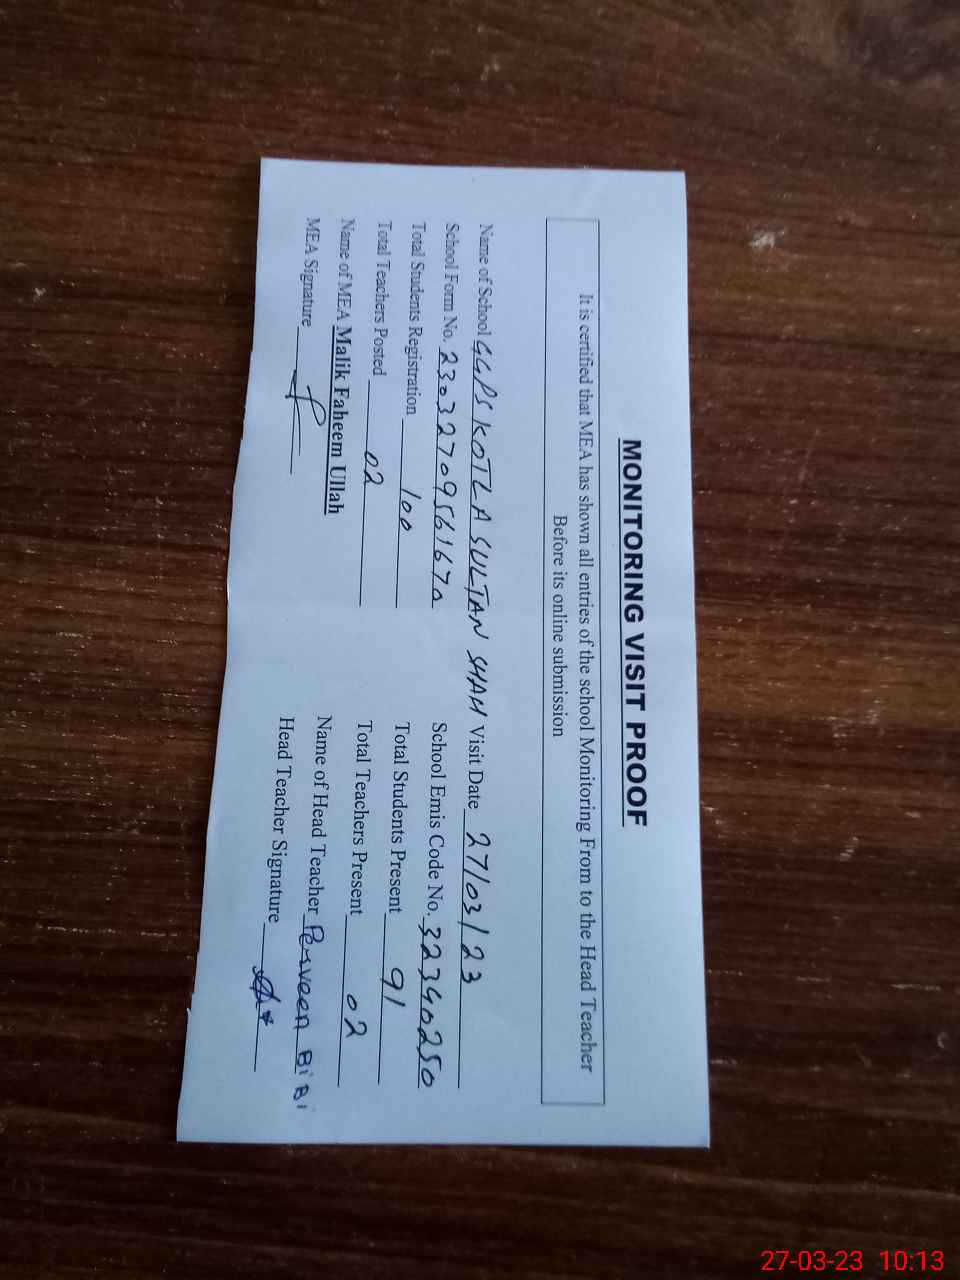 MONITORING VISIT PROOF
It is certified that MEA has shown all entries of the school Monitoring From to the Head Teacher
Before its online submission
Name of School GGPS KOTLA SULTAN SHAH Visit Date 27/03/23
School Form No. 23032709561670 School Emis Code No. 32340250
Total Students Registration 100 Total Students Present 91
Total Teachers Posted 02 Total Teachers Present 02
Name of MEA Malik Faheem Ullah Name of Head Teacher Perveen BiBi
MEA Signature Head Teacher Signature
27-03-23 10:13